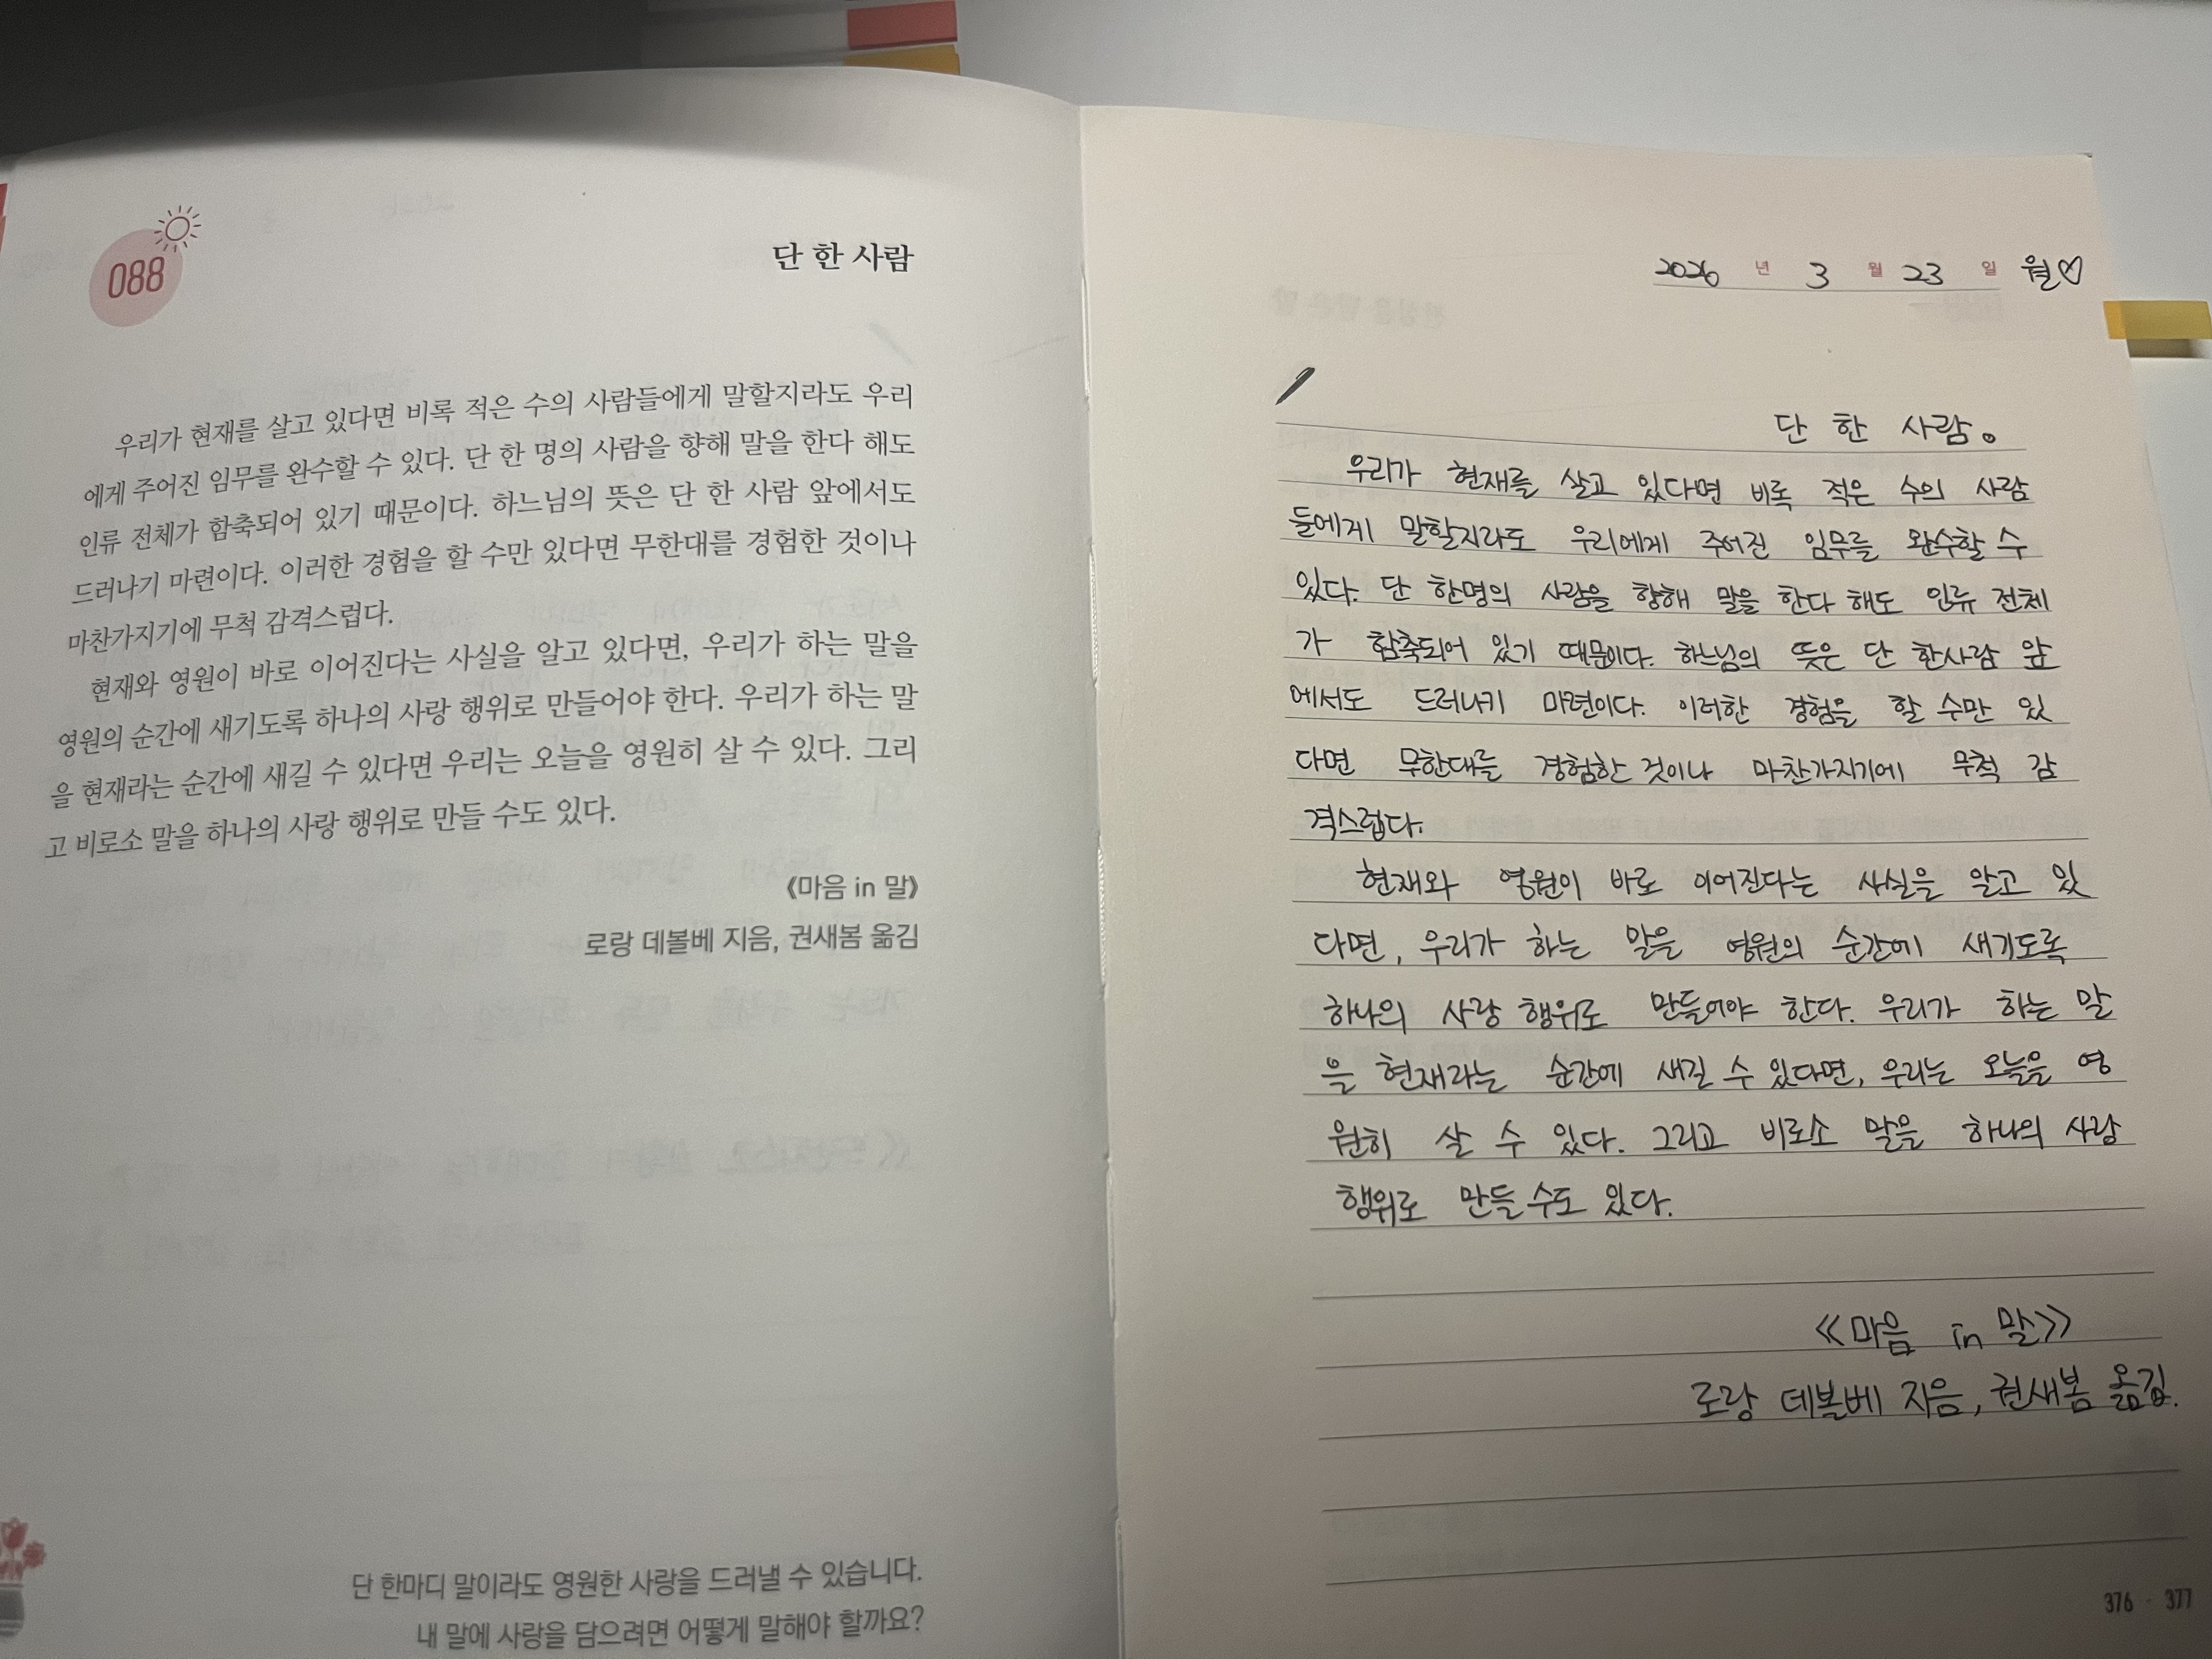 088
단 한 사람
우리가 현재를 살고 있다면 비록 적은 수의 사람들에게 말할지라도 우리
에게 주어진 임무를 완수할 수 있다. 단 한 명의 사람을 향해 말을 한다 해도
인류 전체가 함축되어 있기 때문이다. 하느님의 뜻은 단 한 사람 앞에서도
드러나기 마련이다. 이러한 경험을 할 수만 있다면 무한대를 경험한 것이나
마찬가지기에 무척 감격스럽다.
현재와 영원이 바로 이어진다는 사실을 알고 있다면, 우리가 하는 말을
영원의 순간에 새기도록 하나의 사랑 행위로 만들어야 한다. 우리가 하는 말
을 현재라는 순간에 새길 수 있다면 우리는 오늘을 영원히 살 수 있다. 그리
고 비로소 말을 하나의 사랑 행위로 만들 수도 있다.
《마음 in 말》
로랑 데볼베 지음, 권새봄 옮김
단 한마디 말이라도 영원한 사랑을 드러낼 수 있습니다.
내 말에 사랑을 담으려면 어떻게 말해야 할까요?
2026 년 3 월 23 일 월♡
단 한 사람。
우리가 현재를 살고 있다면 비록 적은 수의 사람
들에게 말할지라도 우리에게 주어진 임무를 완수할 수
있다. 단 한명의 사람을 향해 말을 한다 해도 인류 전체
가 함축되어 있기 때문이다. 하느님의 뜻은 단 한사람 앞
에서도 드러나기 마련이다. 이러한 경험을 할 수만 있
다면 무한대를 경험한 것이나 마찬가지기에 무척 감
격스럽다.
현재와 영원이 바로 이어진다는 사실을 알고 있
다면, 우리가 하는 말을 영원의 순간에 새기도록
하나의 사랑 행위로 만들어야 한다. 우리가 하는 말
을 현재라는 순간에 새길 수 있다면, 우리는 오늘을 영
원히 살 수 있다. 그리고 비로소 말을 하나의 사랑
행위로 만들 수도 있다.
《마음 in 말》
로랑 데볼베 지음, 권새봄 옮김.
376 - 377